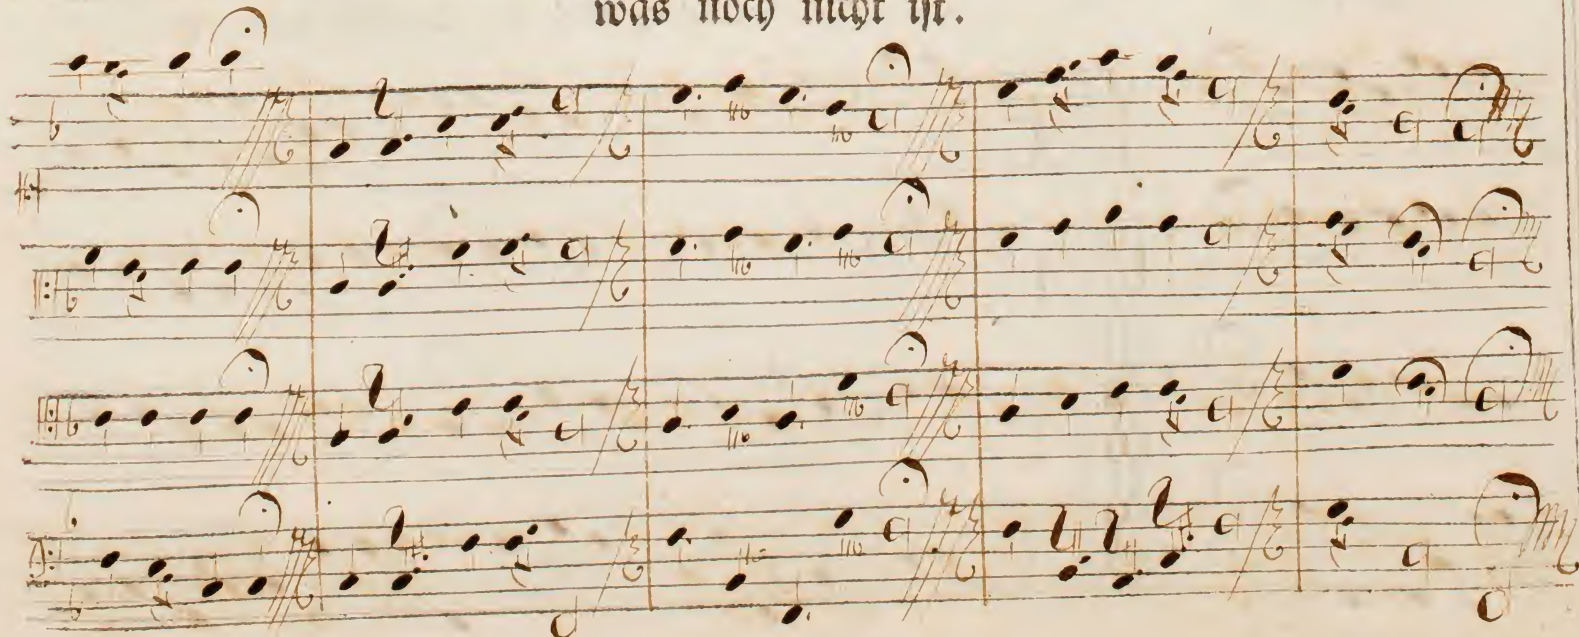 was noch nicht ist.